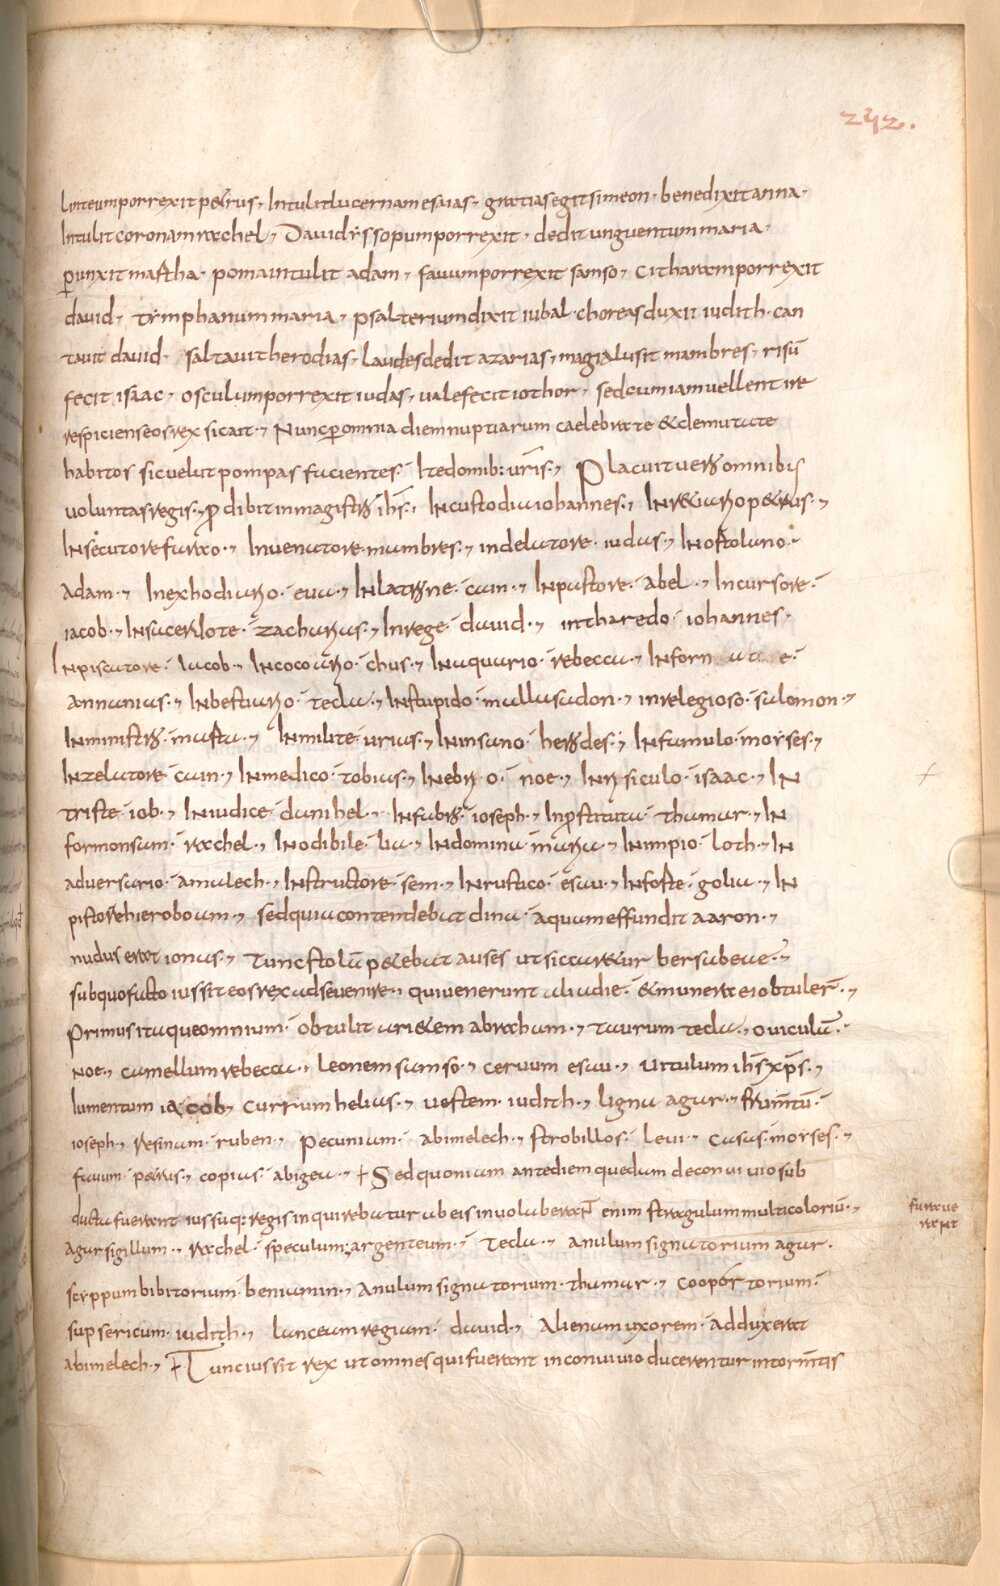 242.
linteum porrexit petrus, Intulit lucernam esaias, gratias egit simeon · benedixit anna ·
Intulit coronam rachel, David yssopum porrexit, dedit unguentum maria ·
ꝑunxit martha · poma intulit adam, favum porrexit samso, Citharam porrexit
david, tymphanum maria, psalterium dixit iubal · choreas duxit iudith · can
tavit david · saltavit herodias, laudes dedit azarias, magia lusit mambres, risū
fecit isaac, osculum porrexit iudas, vale fecit iothor, sed cum iam vellent ire
respiciens eos rex sic ait ·, Nunc ꝑ omnia diem nuptiarum caelebrate & demutate
habitos sic velut pompas facientes · Ite domib: uris ·, Placuit vero omnibus
voluntas regis ·, ꝓdibit in magistro ihs ·, In custodia iohannes ·, In retiario petrus ·,
In secutore faraο ·, In venatore mambres ·, in delatore iudas ·, In ostolano ·
adam ·, In exhodiario · eva ·, In latrone · cain ·, In pastore · abel ·, In cursore ·
iacob ·, In sacerdote · zacharias ·, In rege · david ·, in tharedo · iohannes ·
In piscatore · iacob ·, In cocoario · chus ·, In aquario · rebecca ·, In
annanias ·, In bestiario · tecla ·, In stupido · mallusadon ·, in relegioso · salomon ·,
In ministro · marta ·, In milite · urias ·, In insano · herodes ·, In famulo · moyses ·,
In zelatore · cain ·, In medico · tobias ·, In ebrio · noe ·, In risiculo · isaac ·, In
triste · iob ·, In iudice · danihel ·, In fabro · ioseph ·, In ꝓstituta · thamar ·, In
formonsam · rachel ·, In odibile · lia ·, In domina · maria ·, In impio · loth ·, In
adversario · amalech ·, In structore · sem ·, In rustico · esau ·, In foste · golia ·, In
pistore hieroboam ·, sed quia contendebat dina · aquam effundit aaron ·,
nudus erat ionas ·, Tunc stolū petebat auses ut siccaretur bersabeae ·,
sub quo facto iussit eos rex ad se venire ·, qui venerunt alia die · & munera ei obtuler ·,
Primus itaque omnium · obtulit arietem abracham ·, Taurum tecla ·, oviculā ·
Noe ·, camellum rebecca ·, leonem samso ·, cervum esau ·, vitulum ihs xps ·,
Iumentum iacob, currum helias ·, vestem · iudith ·, ligna agar ·, frumtū ·
ioseph ·, Resinam · ruben ·, Pecuniam · abimelech ·, strobillos · levi ·, Casus · moyses ·,
favum · petrus ·, copias · abigea ·, † Sed quoniam ante diem quedam de convivio sub
ducta fuerant iussuq: regis inquirebatur ab eis involaberat enim stragulum multicoloriū ·,
furave
rat
agar sigillum ·, Rachel · speculum argenteum · Tecla ·, anulum signatorium agar ·
scyppum bibitorium · beniamin ·, anulum signatorium · thamar ·, coopertorium ·
supsericum · iudith ·, lanceam regiam · david ·, Alienam uxorem · adduxerat
abimelech ·, † Tunc iussit rex ut omnes qui fuerant in convivio ducerentur in tormtis